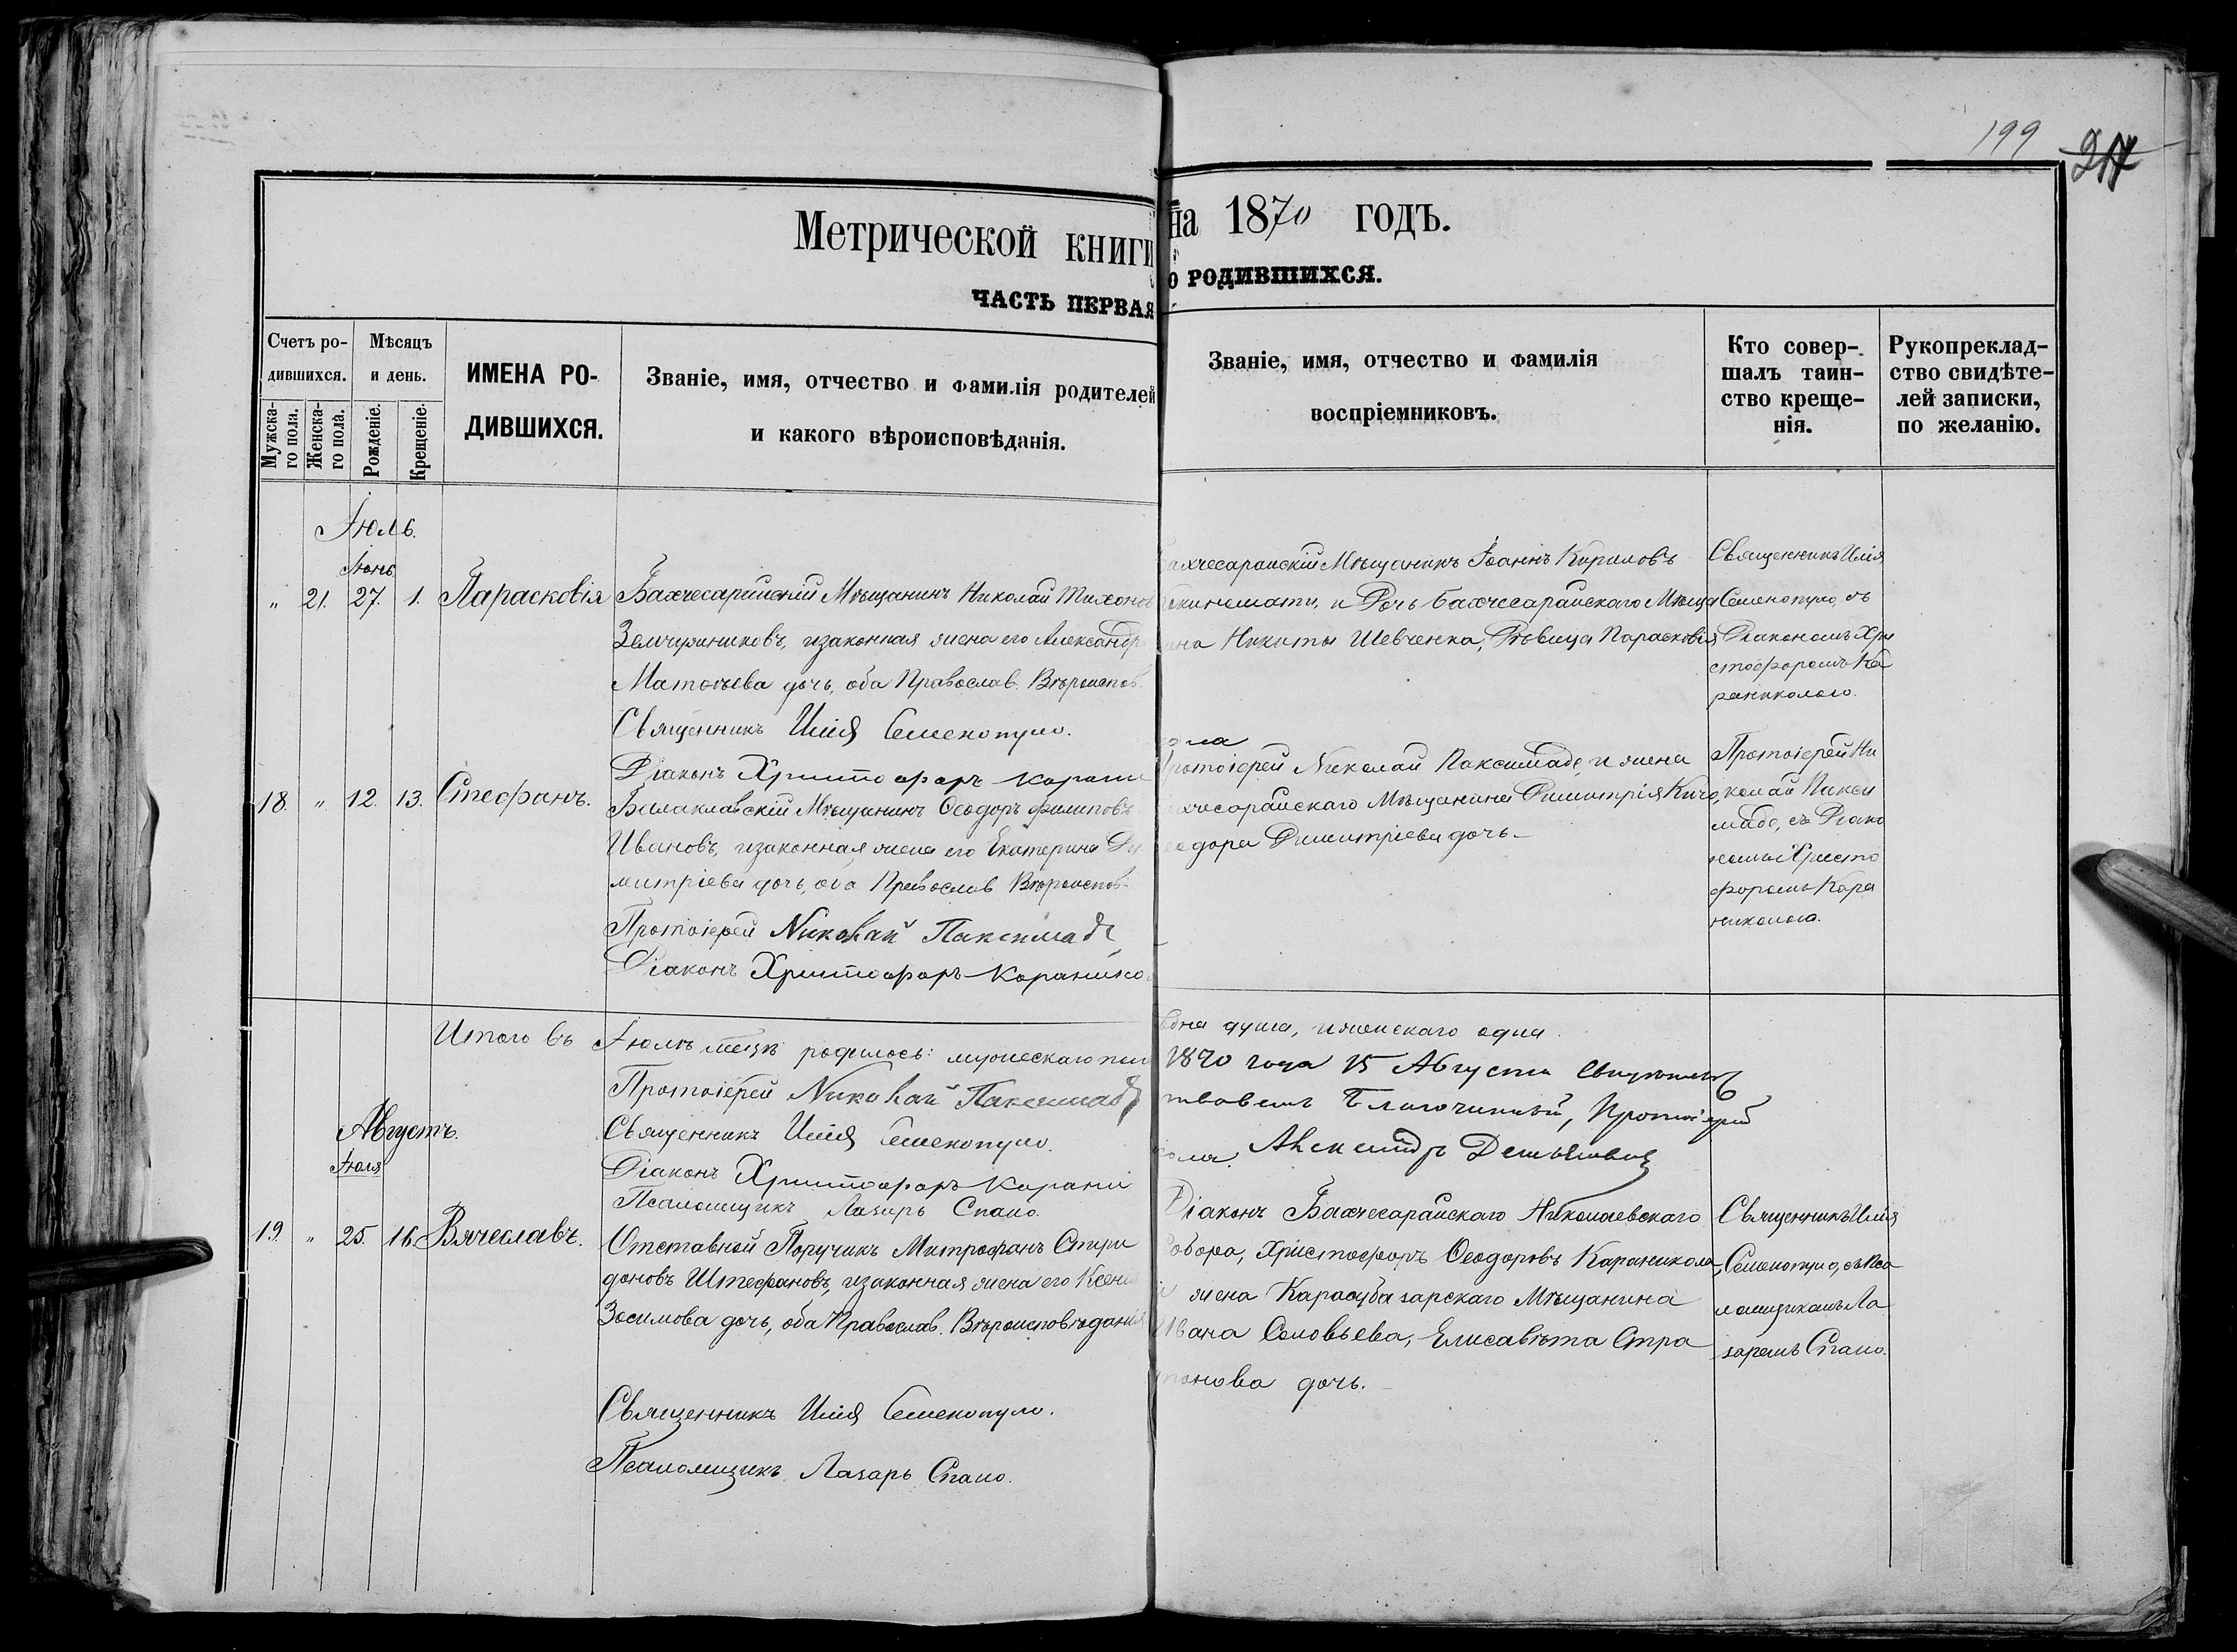 199
217
Метрической книги
на 1870 годъ.
ЧАСТЬ ПЕРВАЯ
о РОДИВШИХСЯ.
Счетъ ро-
дившихся.
Мѣсяцъ
и день.
Мужска-
го пола.
Женска-
го пола.
Рожденіе.
Крещеніе.
ИМЕНА РО-
ДИВШИХСЯ.
Званіе, имя, отчество и фамилія родителей
и какого вѣроисповѣданія.
Званіе, имя, отчество и фамилія
воспріемниковъ.
Кто совер-
шалъ таин-
ство креще-
нія.
Рукоприклад-
ство свидѣте-
лей записки,
по желанію.
Іюль.
Іюнь
" 21. 27. 1. Парасковія
Бахчесарайскій Мѣщанинъ Николай Тихоновъ
Земчужниковъ, изаконная жена его Александр
Матѳѣева дочь, оба Православ. Вѣроисповѣд.
Священникъ Илія Семенопуло.
Діаконъ Христофоръ Карани
Бахчесарайскій Мѣщанинъ Іоаннъ Кириловъ
и Дочь Бахчесарайскаго Мѣща
Никиты Шевченка, Дѣвица Парасковія
Священникъ Илія
Семенопуло, съ
Діакономъ Хри
стофоромъ Ка
раниколою.
18. " 12. 13. Стефанъ.
Балаклавскій Мѣщанинъ Ѳеодоръ Филиповъ
Ивановъ, изаконная жена его Екатерина Ди
митріева дочь, оба Православ Вѣроиспов.
Протоіерей Николай Паксимаде
Діаконъ Христофоръ Каранико
Протоіерей Николай Паксимаде, и жена
Бахчесарайскаго Мѣщанина Димитрія Кичо,
Ѳеодора Димитріева дочь.
Протоіерей Ни
колай Пакси
маде, съ Діако
номъ Христо
форомъ Кара
николою.
Итого въ Іюлѣ мѣсяцѣ родилось: мужескаго пол
одна душа, и женскаго одна.
Протоіерей Николай Паксимаде
Священникъ Илія Семенопуло.
Діаконъ Христофоръ Карани
кола.
Псаломщикъ Лазарь Спано.
1870 года 15 Августа Свидѣтельс
твовалъ Благочинный, Протоіерей
Александръ Демьяновичъ
Августъ.
Іюля
19. " 25. 16. Вячеславъ.
Отставной Поручикъ Митрофанъ Спири
доновъ Штефановъ, изаконная жена его Ксенія
Зосимова дочь, оба Православ. Вѣроисповѣданія
Священникъ Илія Семенопуло.
Псаломщикъ Лазарь Спано.
Діаконъ Бахчесарайскаго Николаевскаго
Собора, Христофоръ Ѳеодоровъ Караникола,
и жена Карасубазарскаго Мѣщанина
Ивана Соловьева, Елисавѣта Стра
тонова дочь.
Священникъ Илія
Семенопуло, съ Пса
ломщикомъ Ла
заремъ Спано.